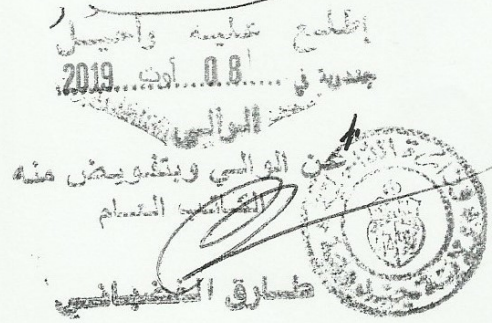 إطلع عليه وأحيل
جندوبة في 08 أوت 2019
الوالي
عن الوالي وبتفويض منه
الكاتب العام
طارق